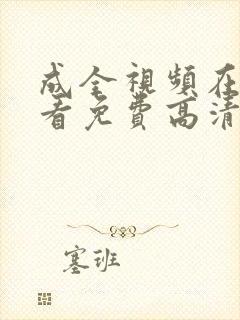 成全視頻在
看免費高清
塞班